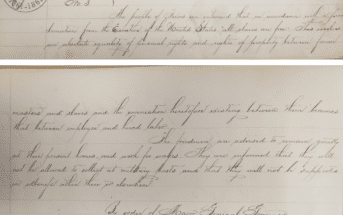 The people of Texas are informed that in accordance with a proclamation
from the Executive of the United States, all slaves are free. This involves
an absolute equality of personal rights and rights of property between former
masters and slaves and the connection heretofore existing between them becomes
that between employer and hired labor.
The freedmen are advised to remain quietly
at their present homes, and work for wages. They are informed that they will
not be allowed to collect at military posts and that they will not be supported
in idleness either there or elsewhere.
By order of Major General